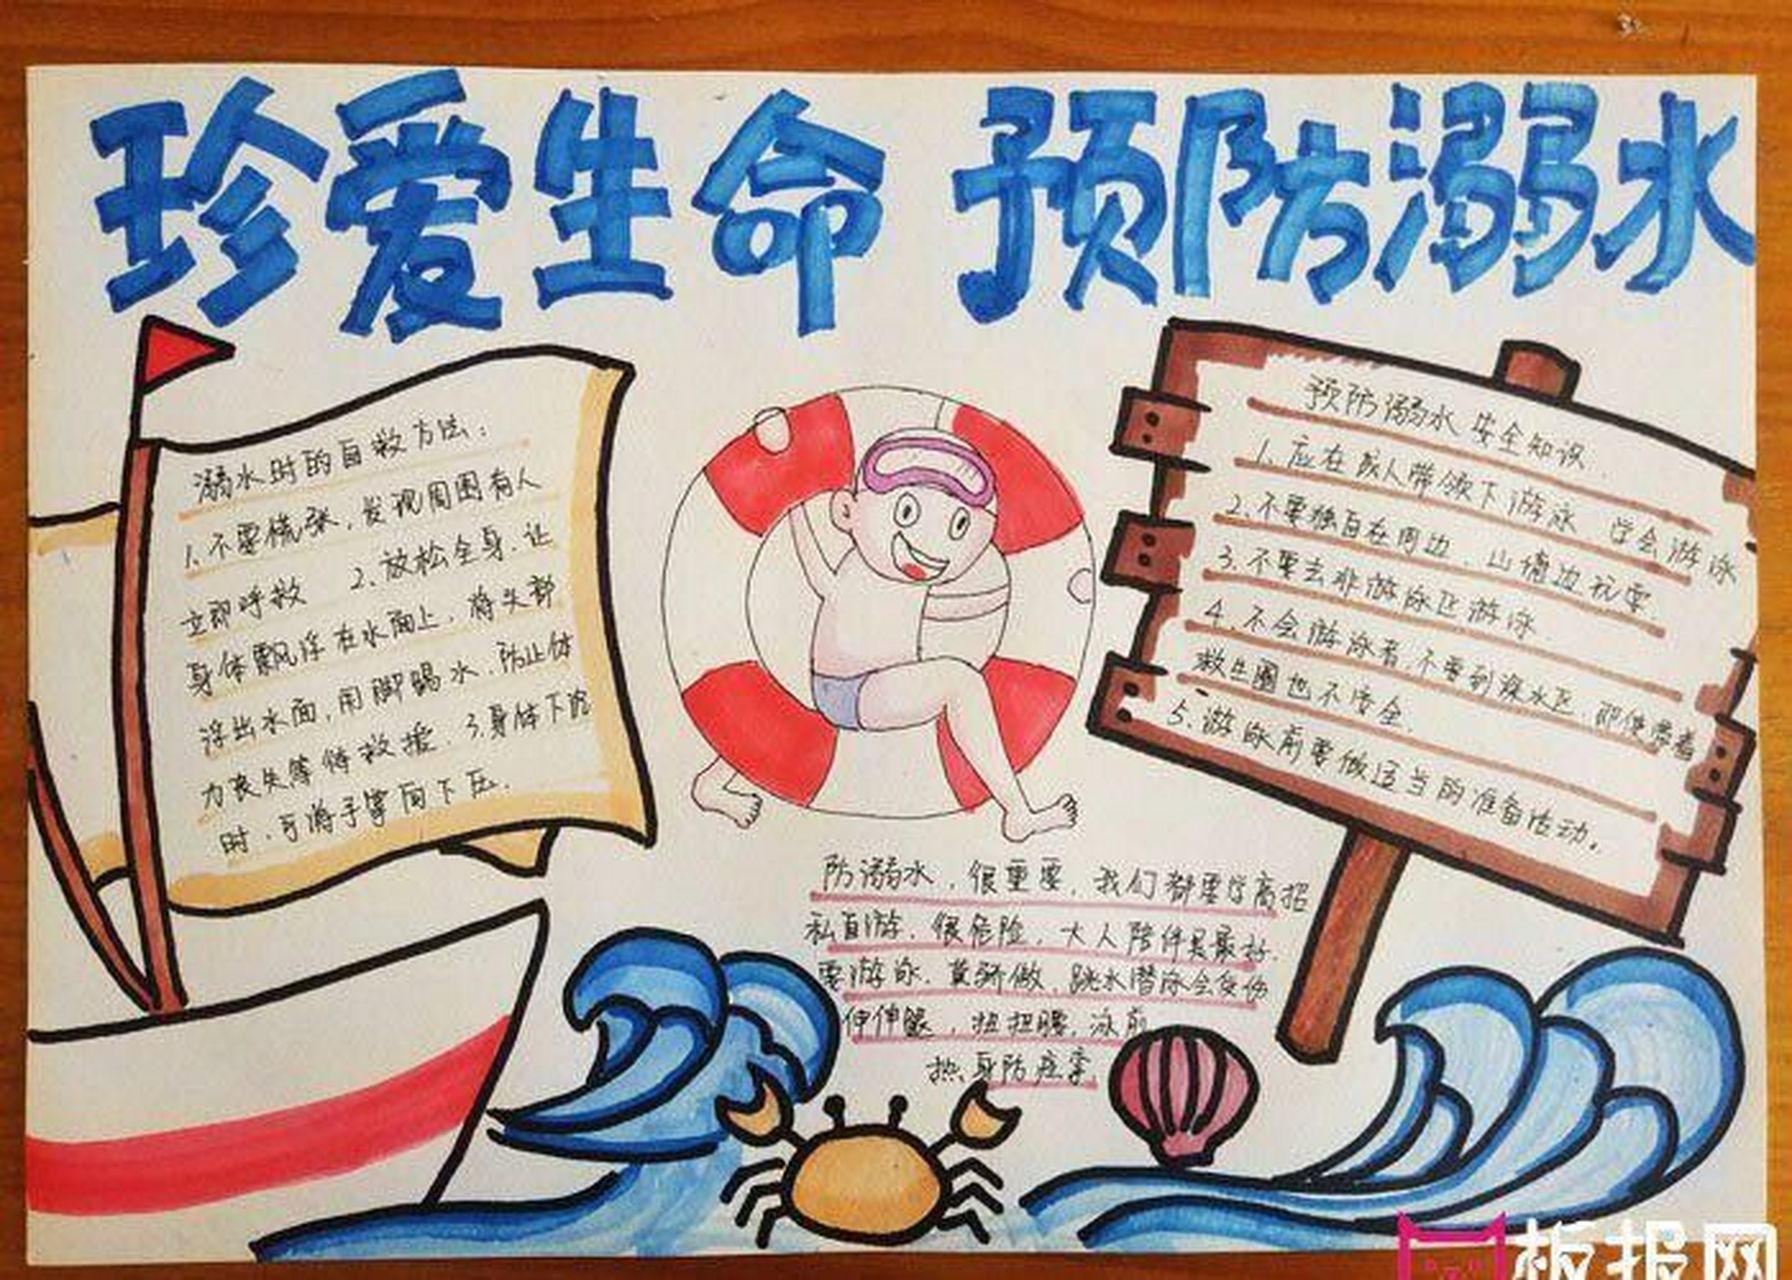 珍爱生命 预防溺水
溺水时的自救方法：
1.不要慌张，发现周围有人
立即呼救 2.放松全身，让
身体飘浮在水面上，将头部
浮出水面，用脚踢水，防止体
力丧失等待救援．3.身体下沉
时，可游手掌向下压．
预防溺水安全知识
1.应在成人带领下游泳，学会游泳
2.不要独自在河边、山塘边玩耍．
3.不要去非游泳区游泳．
4.不会游泳者，不要到深水区，即使带着
救生圈也不安全．
5.游泳前要做适当的准备活动．
防溺水，很重要，我们都要学高招
私自游，很危险，大人陪伴是最好．
要游泳，莫骄傲，跳水潜泳会受伤
伸伸腿，扭扭腰，泳前
热身防痉挛
板报网